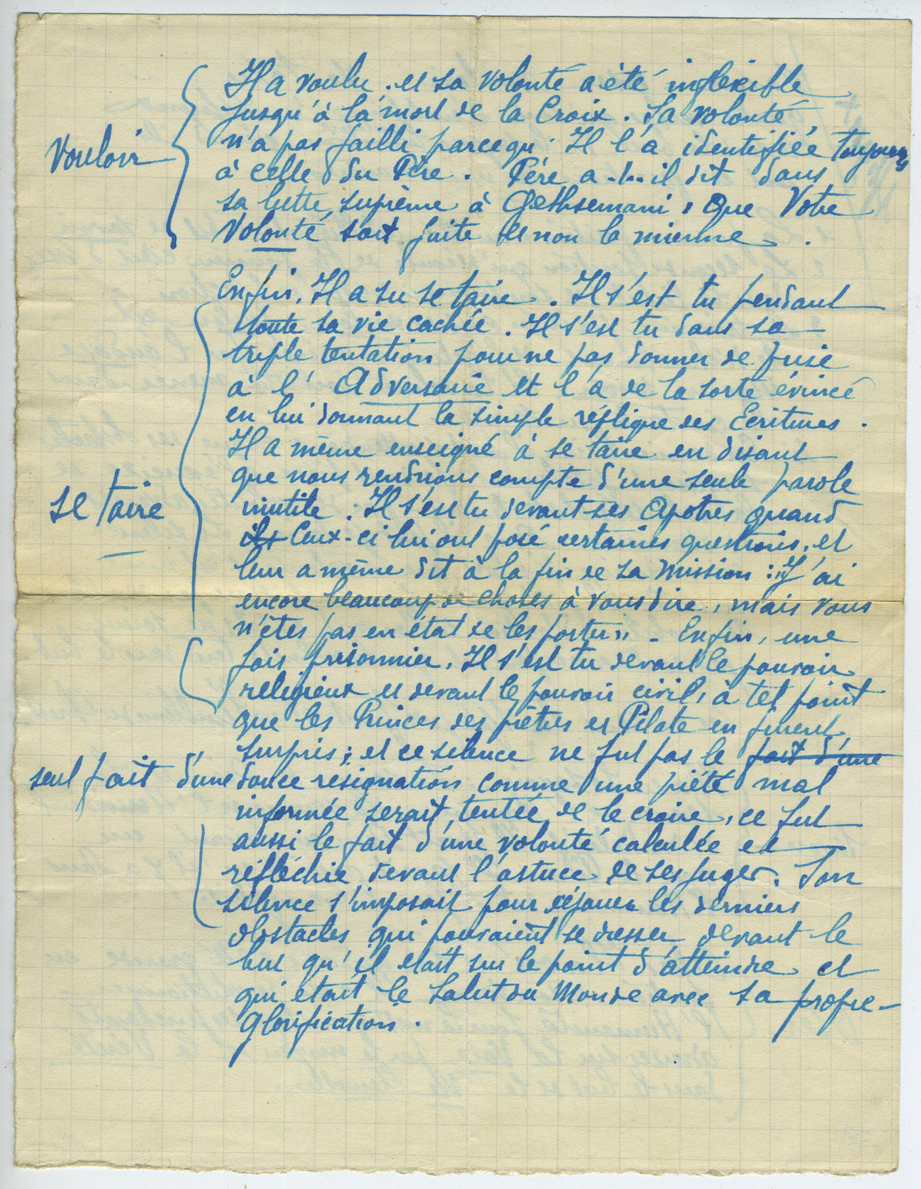 Il a voulu. et sa volonté a été inflexible
jusqu'à la mort de la Croix. Sa volonté
Vouloir
n'a pas failli parcequ: Il l'a identifiée toujours
à celle du Père. Père a-t-il dit dans
sa lutte suprème à Gethsemani, Que Votre
Volonté soit faite et non la mienne.
Enfin, Il a su se taire. Il s'est tu pendant
toute sa vie cachée. Il s'est tu dans sa
triple tentation pour ne pas donner de prise
à l'Adversaire et l'a de la sorte évincé
en lui donnant la simple réplique des Ecritures.
Il a même enseigné à se taire en disant
que nous rendrions compte d'une seule parole
se taire
inutile. Il s'est tu devant ses Apotres quand
ils Ceux-ci lui ont posé certaines questions, et
leur a même dit à la fin de sa Mission: "J'ai
encore beaucoup de choses à vous dire, mais vous
n'êtes pas en état de les porter". Enfin, une
fois prisonnier, Il s'est tu devant le pouvoir
religieux et devant le pouvoir civil, à tel point
que les Princes des prêtres et Pilate en furent
surpris; et ce silence ne fut pas le fait d'une
seul fait d'une douce résignation comme une piété mal
informée serait tentée de le croire, ce fut
aussi le fait d'une volonté calculée et
réfléchie devant l'astuce de ses juges. Son
silence s'imposait pour déjouer les derniers
obstacles qui pouvaient se dresser devant le
but qu'il était sur le point d'atteindre et
qui était le Salut du Monde avec sa propre
Glorification.